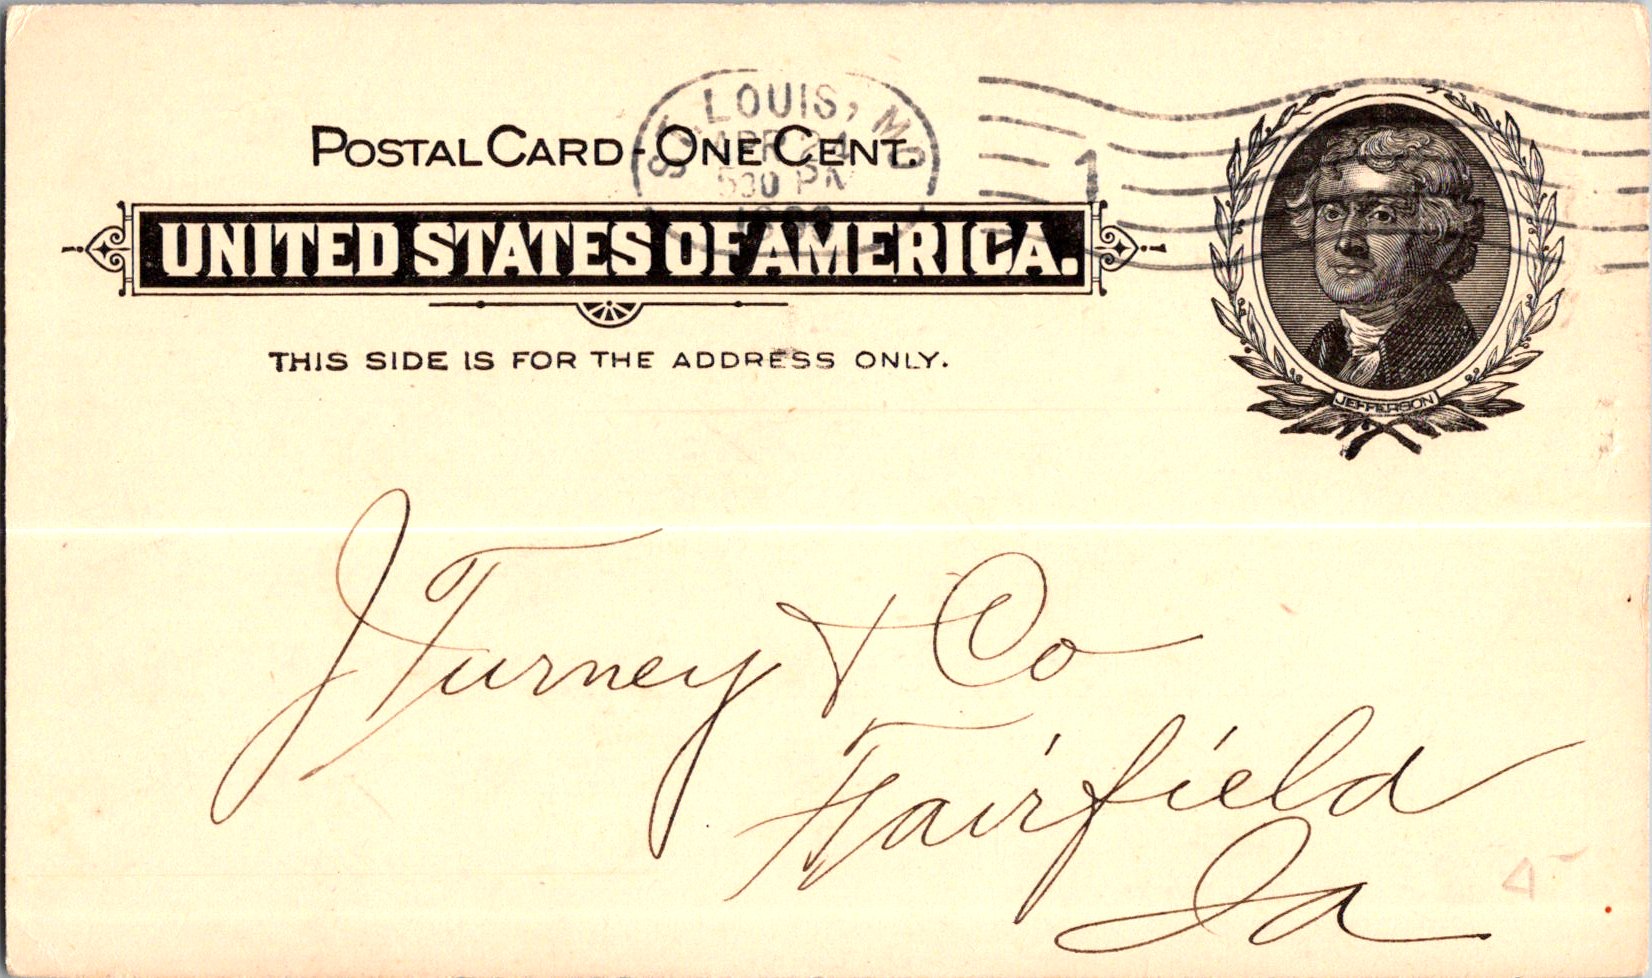 ST. LOUIS, MO
APR 24
530 PM
1
POSTAL CARD - ONE CENT.
UNITED STATES OF AMERICA.
THIS SIDE IS FOR THE ADDRESS ONLY.
JEFFERSON
J Turney & Co
Fairfield
Ia